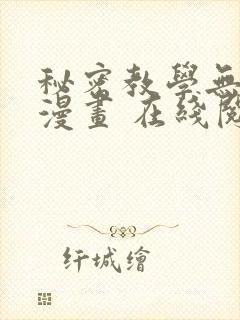 秘密教學無
漫畫 在綫閱
纤城繪